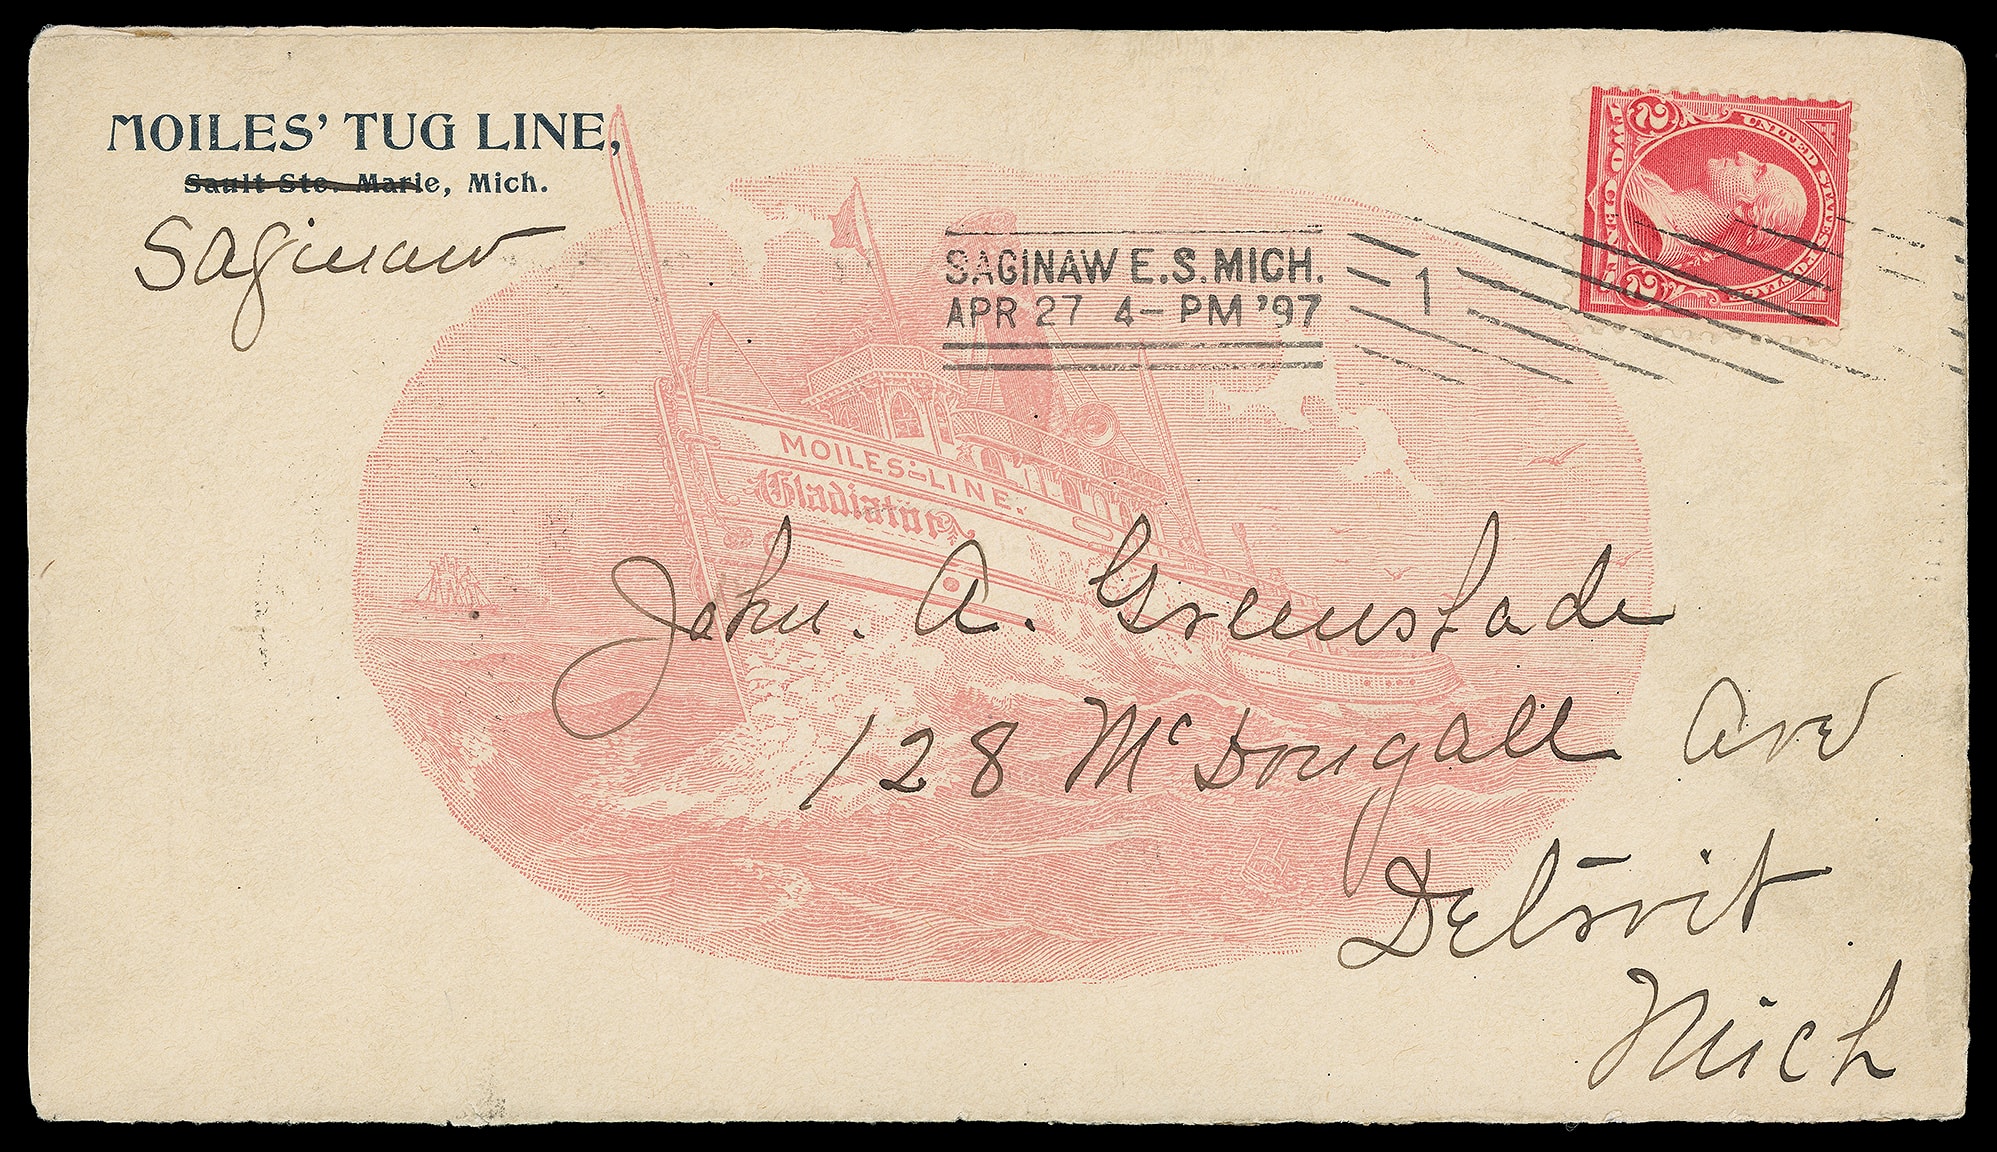 MOILES' TUG LINE,
Sault Ste. Marie, Mich.
Saginaw
SAGINAW E.S. MICH.
APR 27 4-PM '97
1
UNITED STATES POSTAGE
TWO CENTS
2 2
MOILES' LINE.
Gladiator
John. A. Greenslade
128 McDougall Ave
Detroit
Mich